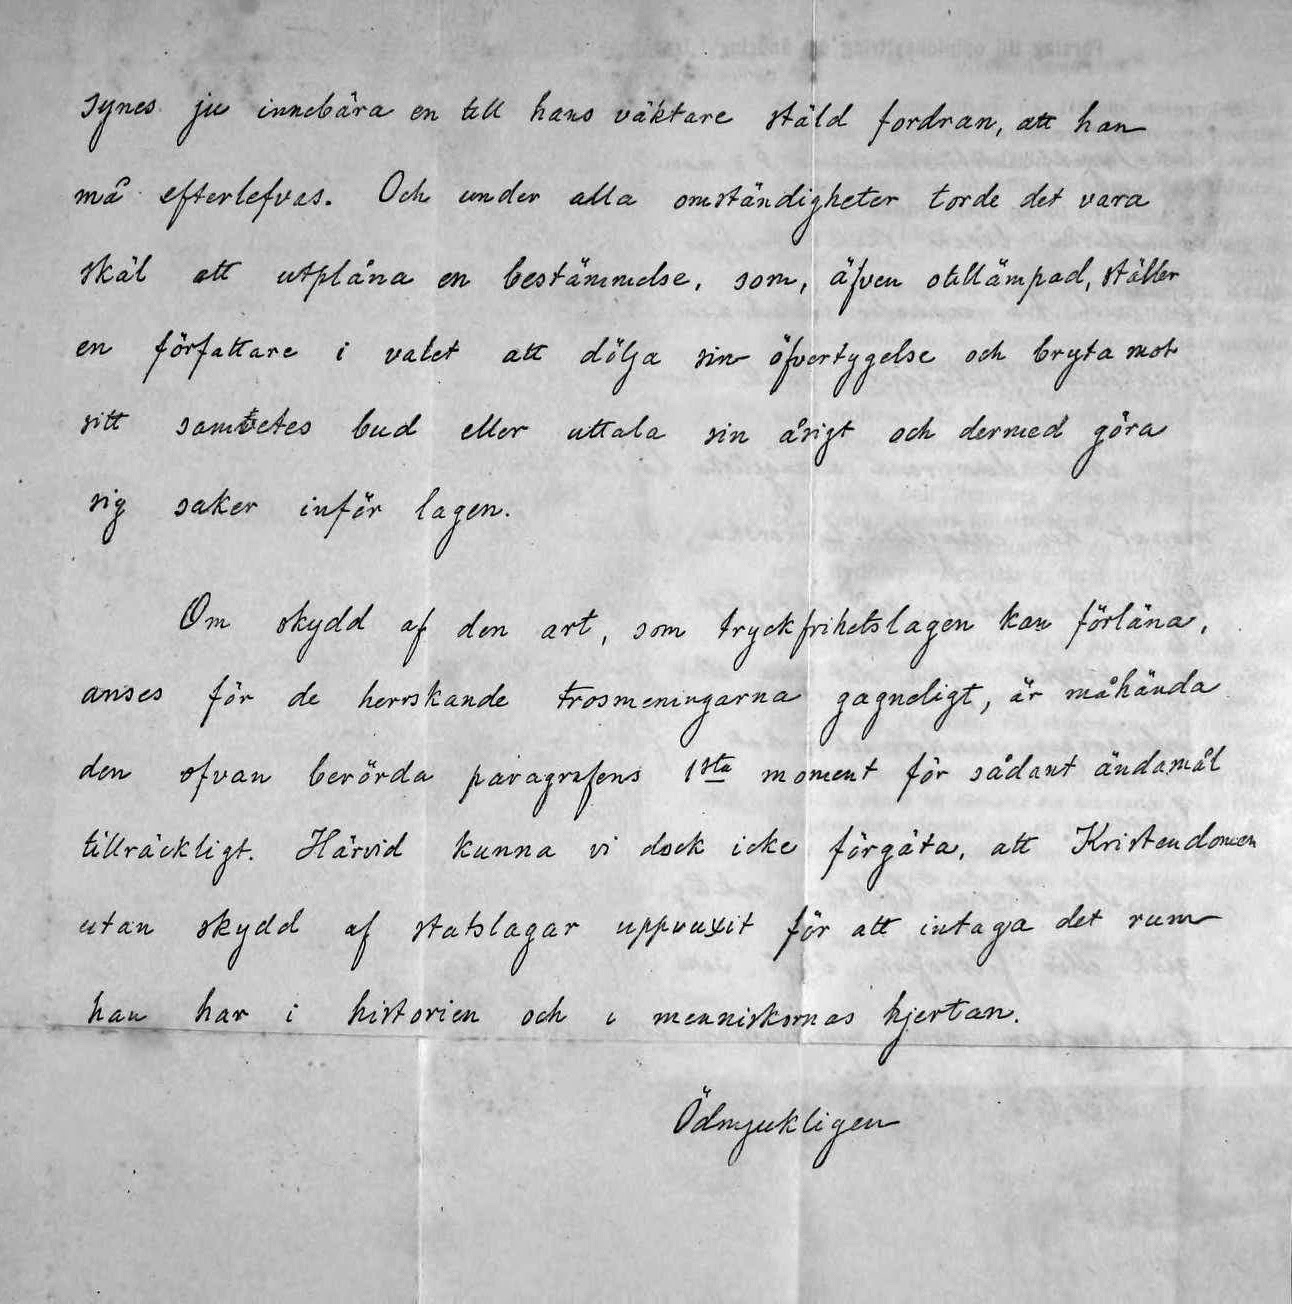 synes ju innebära en till hans väktare stäld fordran, att han
må efterlefvas. Och under alla omständigheter torde det vara
skäl att utplåna en bestämmelse, som, äfven otillämpad, ställer
en författare i valet att dölja sin öfvertygelse och bryta mot
sitt samvetes bud eller uttala sin åsigt och dermed göra
sig saker inför lagen.
Om skydd af den art, som tryckfrihetslagen kan förläna,
anses för de herrskande trosmeningarna gagneligt, är måhända
den ofvan berörda paragrafens 1sta moment för sådant ändamål
tillräckligt. Härvid kunna vi dock icke förgäta, att Kristendomen
utan skydd af statslagar uppvuxit för att intaga det rum
han har i historien och i menniskornas hjertan.
Ödmjukligen